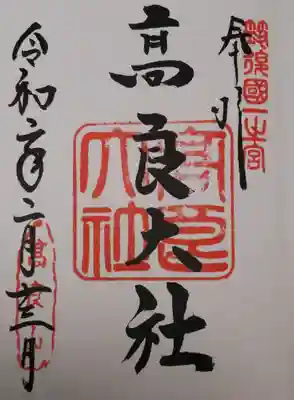 筑後國一之宮
奉拝
高良大社
高良大社
令和六年二月十三日